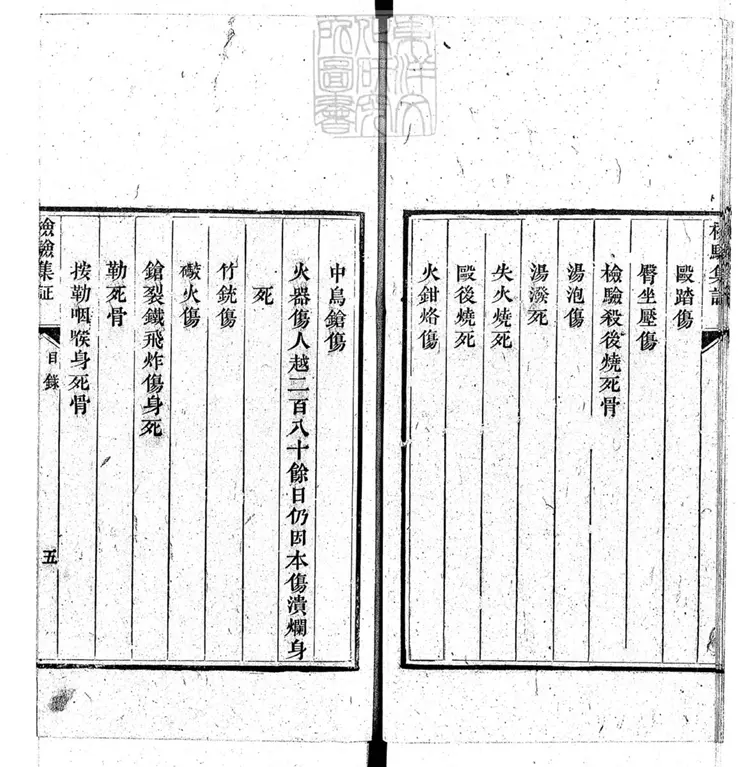 毆踏傷
臀坐壓傷
檢驗殺後燒死骨
湯泡傷
湯潑死
失火燒死
毆後燒死
火鉗烙傷
中鳥鎗傷
火器傷人越二百八十餘日仍因本傷潰爛身
死
竹銃傷
礮火傷
鎗裂鐵飛炸傷身死
勒死骨
按勒咽喉身死骨
檢驗集証
目錄
五
東洋文
化研究
所圖書